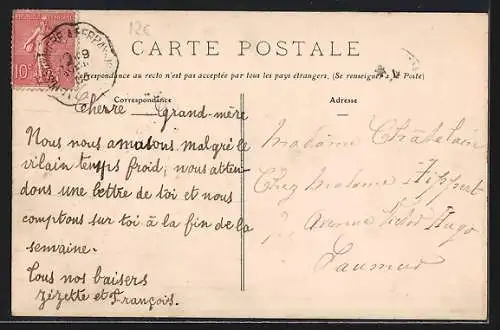 12€
10c
9
CARTE POSTALE
Correspondance au recto n'est pas acceptée par tous les pays étrangers. (Se renseigner à la Poste)
Correspondance
Adresse
Cherre Grand-mère
Nous nous amusons malgré le
vilain temps froid; nous atten-
dons une lettre de toi et nous
comptons sur toi à la fin de la
semaine.
Tous nos baisers
Zézette et François.
Madame Châtelain
Chez Madame Fippert
Avenue Victor Hugo
Saumur